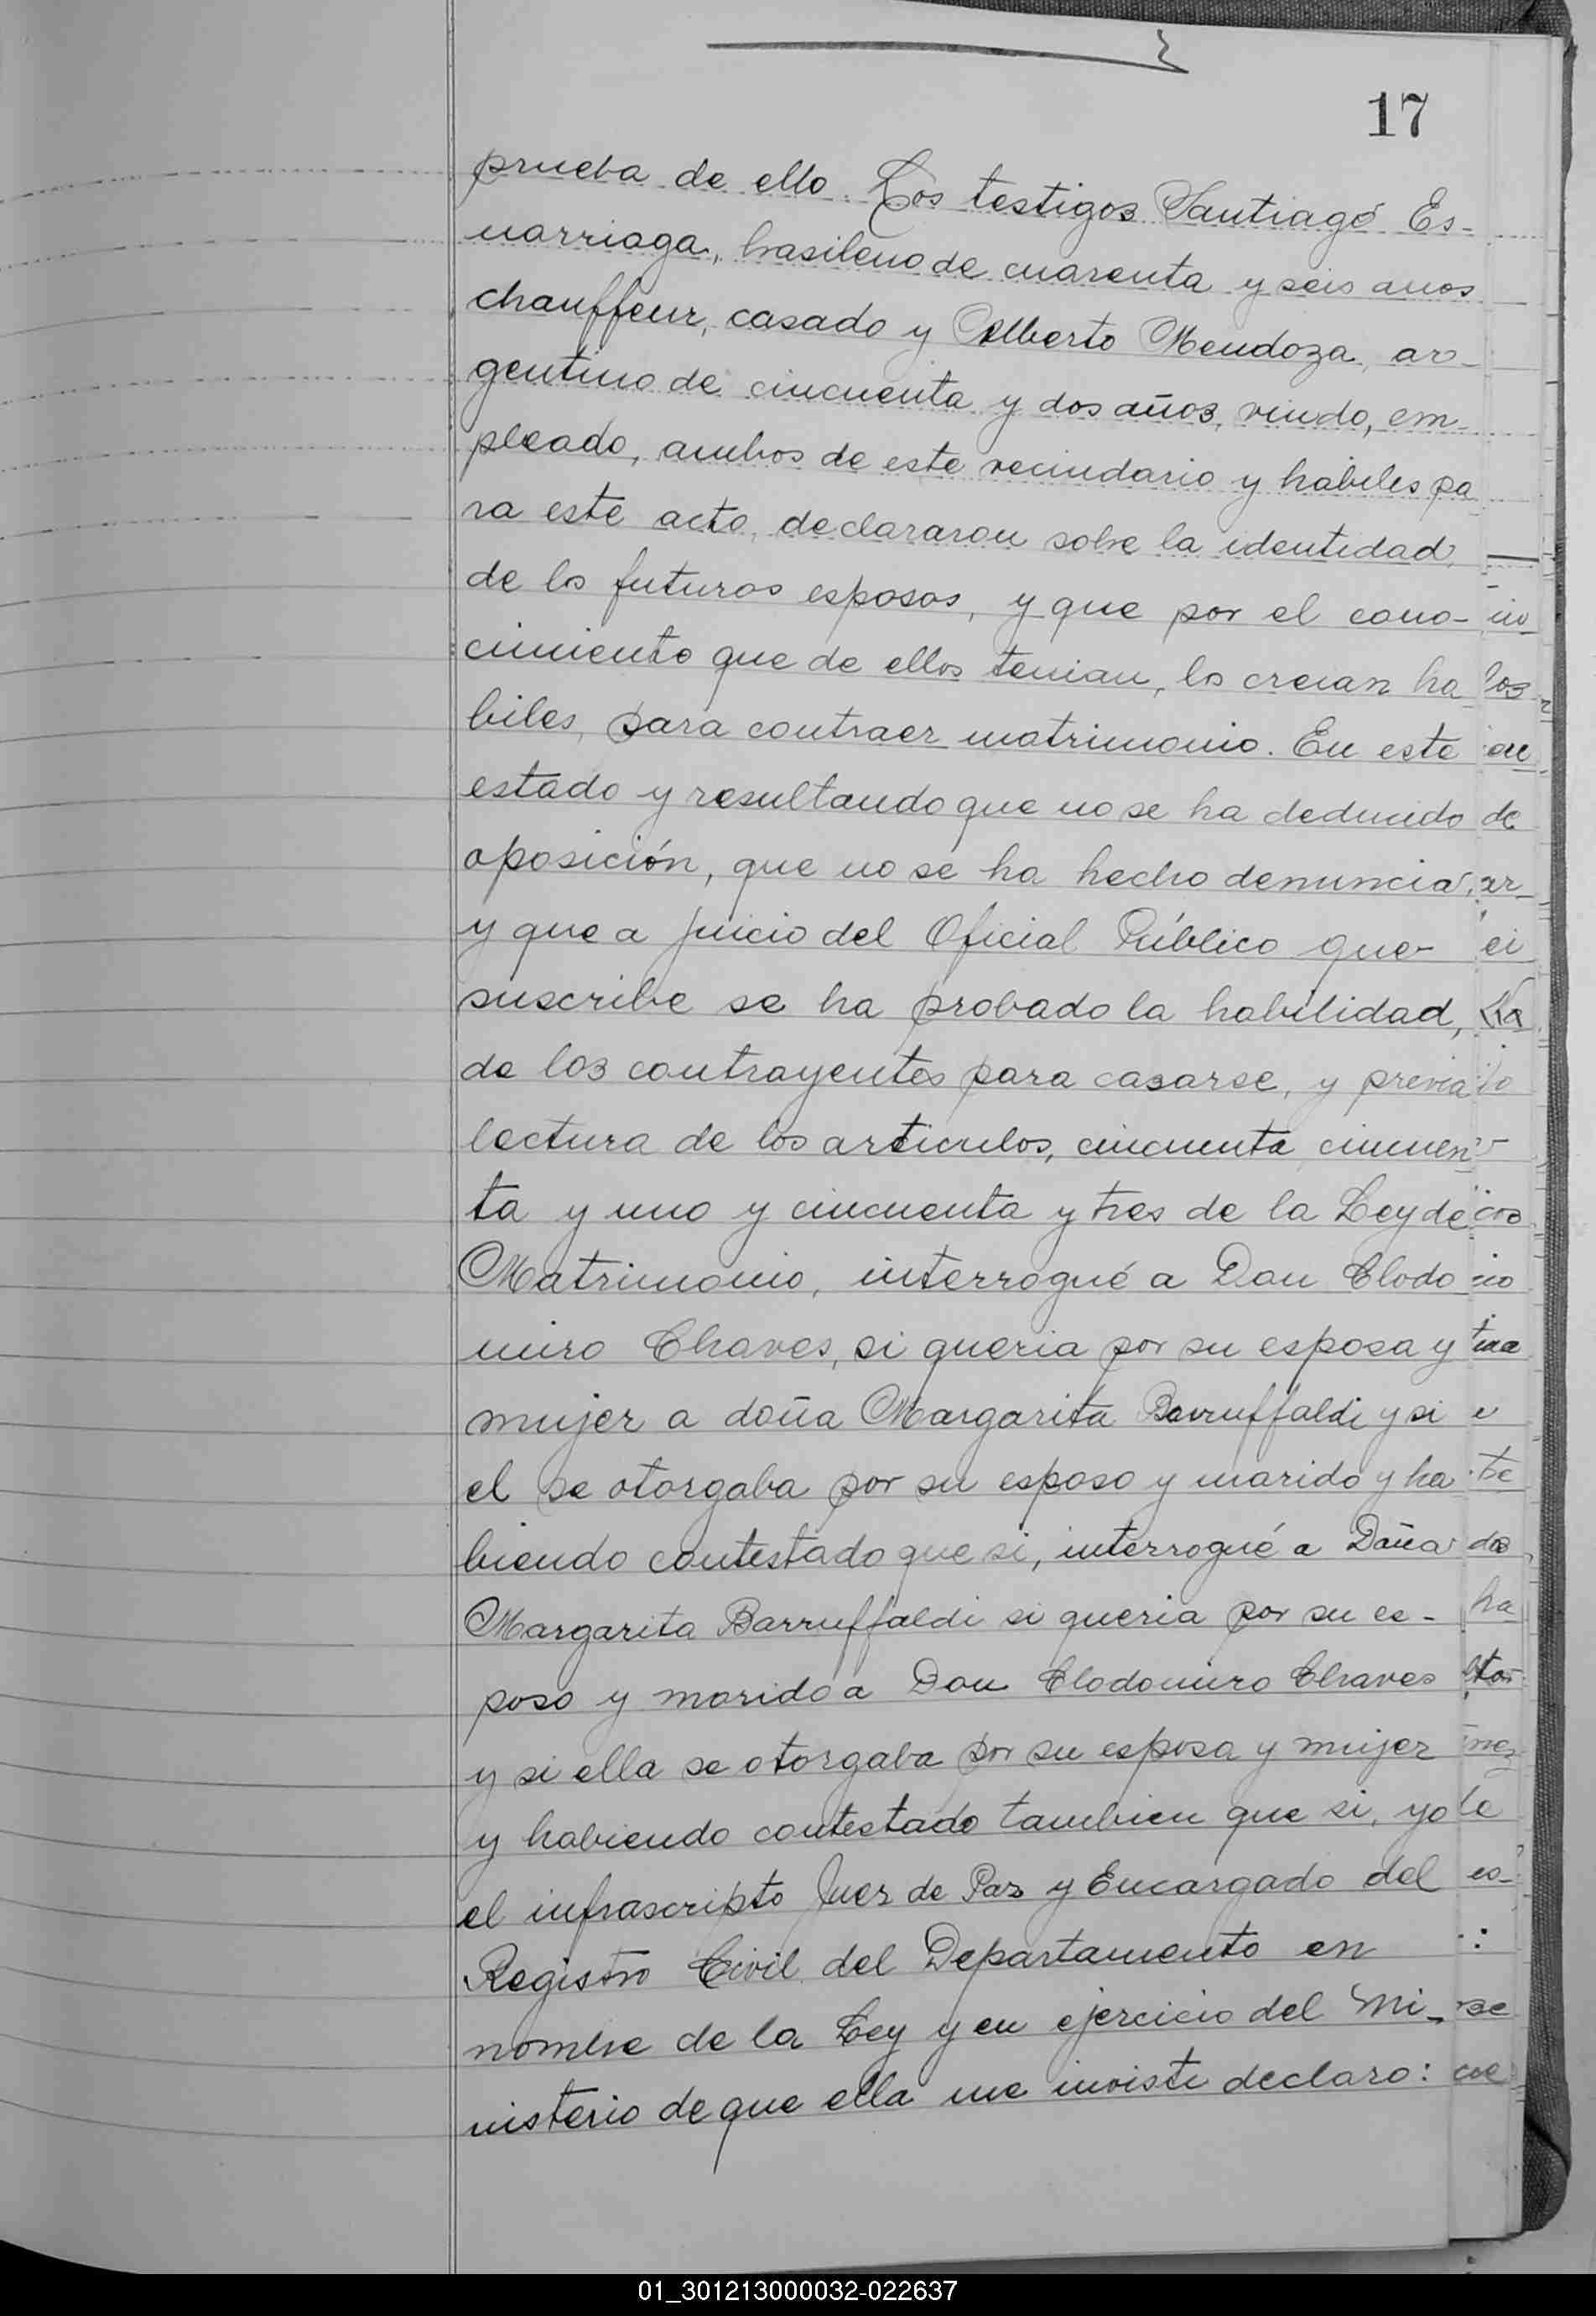 17
prueba de ello. Los testigos Santiago Es-
narriaga, brasileno de cuarenta y seis anos
chauffeur, casado y Alberto Mendoza, ar-
gentino de cincuenta y dos años, viudo, em-
pleado, ambos de este vecindario y habiles pa
ra este acto, declararon sobre la identidad
de los futuros esposos, y que por el cono-
cimiento que de ellos tenian, los creian ha
biles, para contraer matrimonio. En este
estado y resultando que no se ha deducido
oposición, que no se ha hecho denuncia,
y que a juicio del Oficial Público que-
suscribe se ha probado la habilidad,
de los contrayentes para casarse, y previa
lectura de los articulos, cincuenta, cincuen
ta y uno y cincuenta y tres de la Ley de
Matrimonio, interrogué a Don Clodo
miro Chaves, si queria por su esposa y
mujer a doña Margarita Barruffaldi y si
el se otorgaba por su esposo y marido y ha
biendo contestado que si, interrogué a Doña
Margarita Barruffaldi si queria por su es-
poso y marido a Don Clodomiro Chaves
y si ella se otorgaba por su esposa y mujer
y habiendo contestado tambien que si, yo
el infrascripto Juez de Paz y Encargado del
Registro Civil del Departamento en
nombre de la Ley y en ejercicio del Mi-
nisterio de que ella me inviste declaro:
01_301213000032-022637